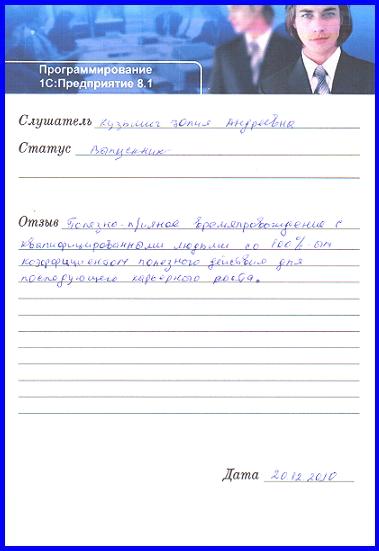 Программирование
1С:Предприятие 8.1
Слушатель Кузьмич Юлия Андреевна
Статус Выпускник
Отзыв Полезно-приятное времяпровождение с
квалифицированными людьми со 100%-ым
коэффициентом полезного действия для
последующего карьерного роста.
Дата 20.12.2010